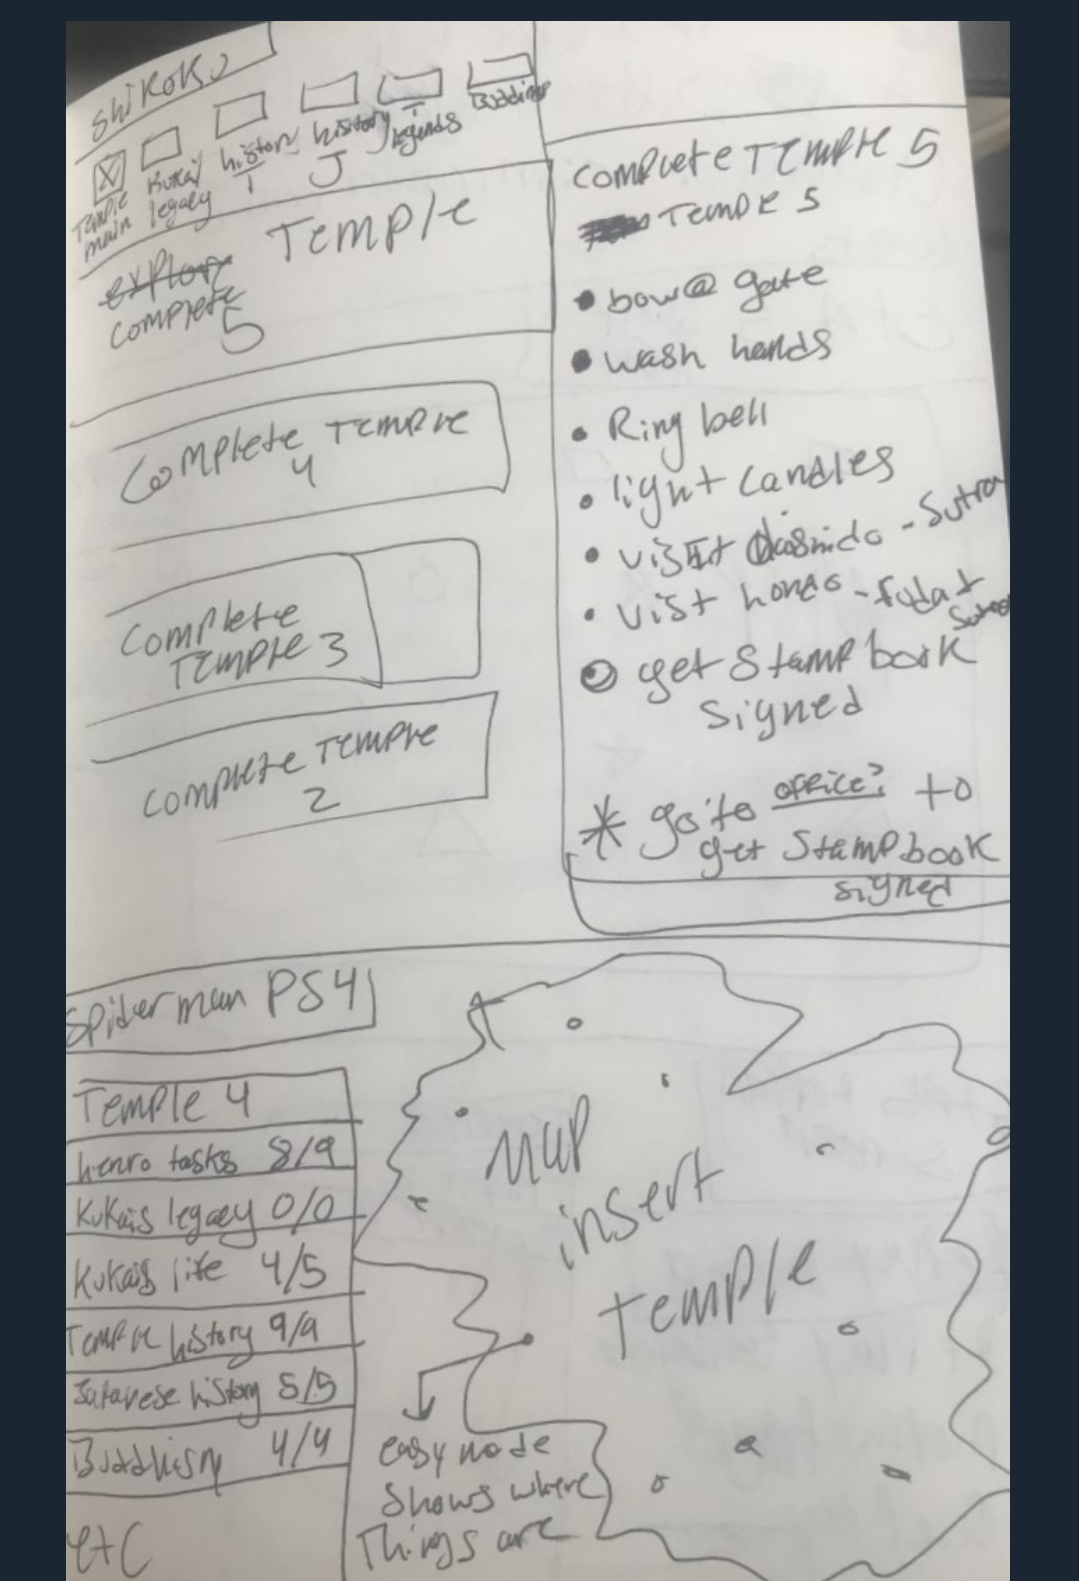 Shikoku
Temple
main
Kukai
legacy
history
T
history
J
legends
T
Buddhism
explore
complete
5
Temple
Complete Temple
4
Complete
Temple 3
Complete Temple
2
Complete Temple 5
Temple 5
• bow @ gate
• wash hands
• Ring bell
• light candles
• visit daishido - Sutra
• visit hondo - fuda +
Sutra
get Stamp book
signed
* go to office? to
get Stamp book
signed
Spiderman PS4
Temple 4
henro tasks 8/9
Kukais legacy 0/0
Kukais life 4/5
Temple history 9/9
Japanese history 5/5
Buddhism 4/4
etc
Map
insert
temple
easy mode
shows where
things are